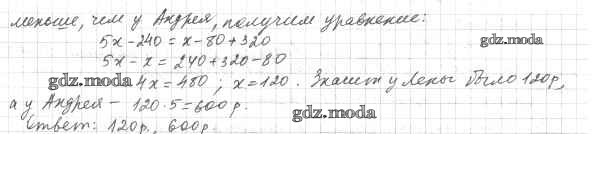 меньше, чем у Андрея, получим уравнение:
5х - 240 = х - 80 + 320
gdz.moda
5х - х = 240 + 320 - 80
gdz.moda 4х = 480 ; х = 120. Значит у Лены было 120 р,
а у Андрея - 120 · 5 = 600 р.
gdz.moda
Ответ: 120 р., 600 р.